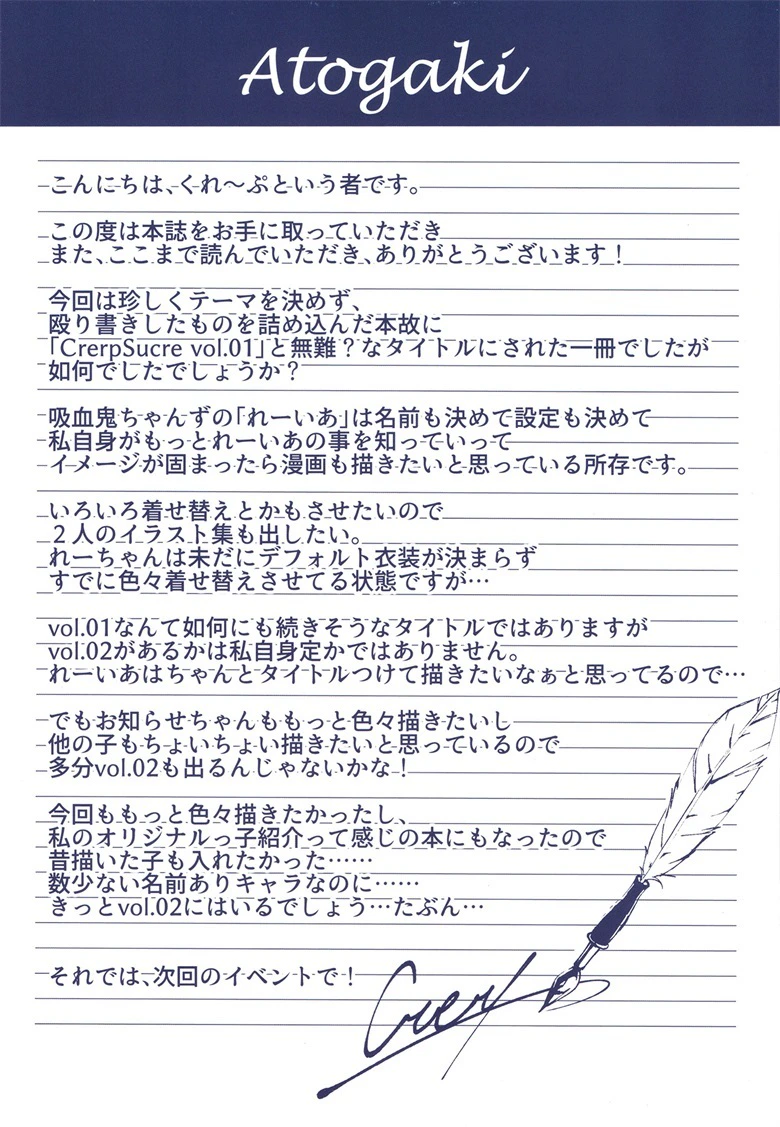 Atogaki
こんにちは、くれ～ぷという者です。
この度は本誌をお手に取っていただき
また、ここまで読んでいただき、ありがとうございます！
今回は珍しくテーマを決めず、
殴り書きしたものを詰め込んだ本故に
「CrerpSucre vol.01」と無難？なタイトルにされた一冊でしたが
如何でしたでしょうか？
吸血鬼ちゃんずの「れーいあ」は名前も決めて設定も決めて
私自身がもっとれーいあの事を知っていって
イメージが固まったら漫画も描きたいと思っている所存です。
いろいろ着せ替えとかもさせたいので
２人のイラスト集も出したい。
れーちゃんは未だにデフォルト衣装が決まらず
すでに色々着せ替えさせてる状態ですが…
vol.01なんて如何にも続きそうなタイトルではありますが
vol.02があるかは私自身定かではありません。
れーいあはちゃんとタイトルつけて描きたいなぁと思ってるので…
でもお知らせちゃんももっと色々描きたいし
他の子もちょいちょい描きたいと思っているので
多分vol.02も出るんじゃないかな！
今回ももっと色々描きたかったし、
私のオリジナルっ子紹介って感じの本にもなったので
昔描いた子も入れたかった……
数少ない名前ありキャラなのに……
きっとvol.02にはいるでしょう…たぶん…
それでは、次回のイベントで！